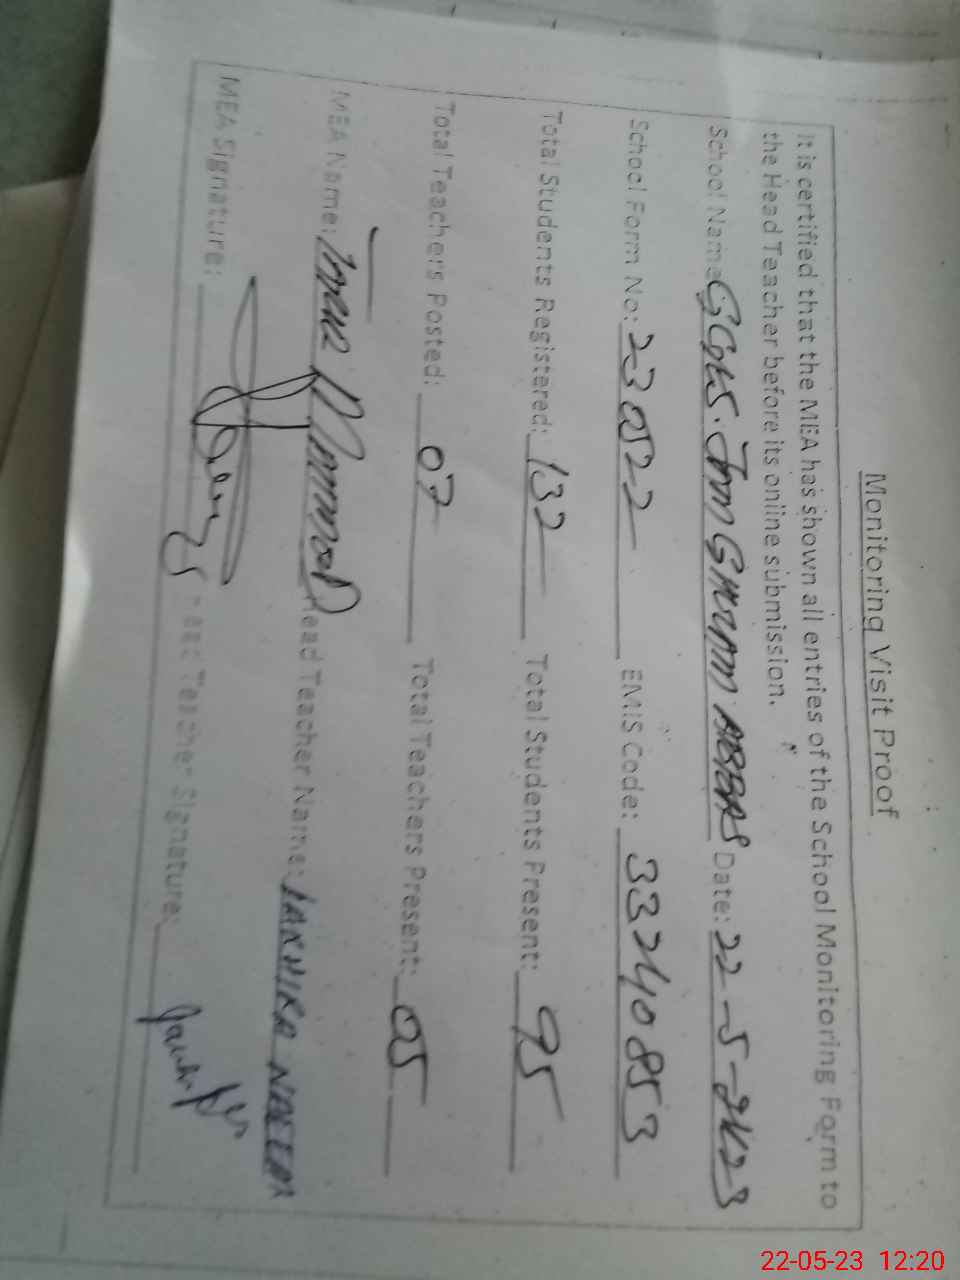 Monitoring Visit Proof
It is certified that the MEA has shown all entries of the School Monitoring Form to
the Head Teacher before its online submission.
School Name: GGHS. ABBAS Date: 22-5-2023
School Form No: 23052 EMIS Code: 33240853
Total Students Registered: 132 Total Students Present: 95
Total Teachers Posted: 07 Total Teachers Present: 05
MEA Name: Head Teacher Name:
MEA Signature: Head Teacher Signature:
22-05-23 12:20